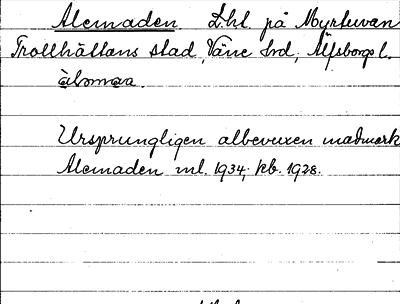 Alemaden L.hl. på Myrtuvan
Trollhättans stad, Väne hrd, Älfsborgs l.
àləmạ
Ursprungligen albevuxen madmark
Alemaden ml. 1934; kb. 1928.